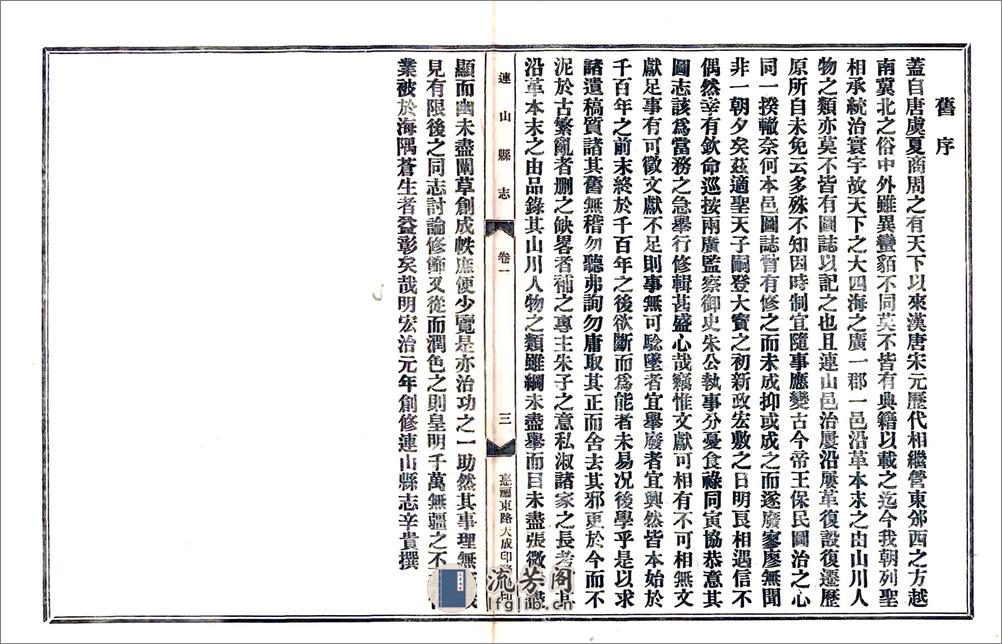 舊序
蓋自唐虞夏商周之有天下以來漢唐宋元歷代相繼營東邠西之方越
南冀北之俗中外雖異蠻貊不同莫不皆有典籍以載之迄今我朝列聖
相承統治寰宇故天下之大四海之廣一郡一邑沿革本末之由山川人
物之類亦莫不皆有圖誌以記之也且連山邑治屢沿屢革復設復遷歷
原所自未免云多殊不知因時制宜隨事應變古今帝王保民圖治之心
同一揆轍奈何本邑圖誌暫有修之而未成抑或成之而遂廢寥廖無聞
非一朝夕矣茲適聖天子嗣登大寶之初新政宏敷之日明良相遇信不
偶然幸有欽命巡按兩廣監察御史朱公執事分憂食祿同寅協恭意其
圖志該為當務之急舉行修輯甚盛心哉竊惟文獻可相有不可相無文
獻足事有可徵文獻不足則事無可驗墜者宜舉廢者宜興然皆本始於
千百年之前末終於千百年之後欲斷而為能者未易況後學乎是以求
諸遺稿質諸其舊無稽勿聽弗詢勿庸取其正而舍去其邪更於今而不
泥於古繁亂者刪之缺畧者補之專主朱子之意私淑諸家之長考其
沿革本末之由品錄其山川人物之類雖綱未盡舉而目未盡張微
連山縣志
卷一
三
惠福東路大成印
顯而幽未盡闡草創成帙庶便少覽是亦治功之一助然其事理無
見有限後之同志討論修飾又從而潤色之則皇明千萬無疆之不
業被於海隅蒼生者益彰矣哉明宏治元年創修連山縣志辛貴撰
流芳閣
lfglib.cn